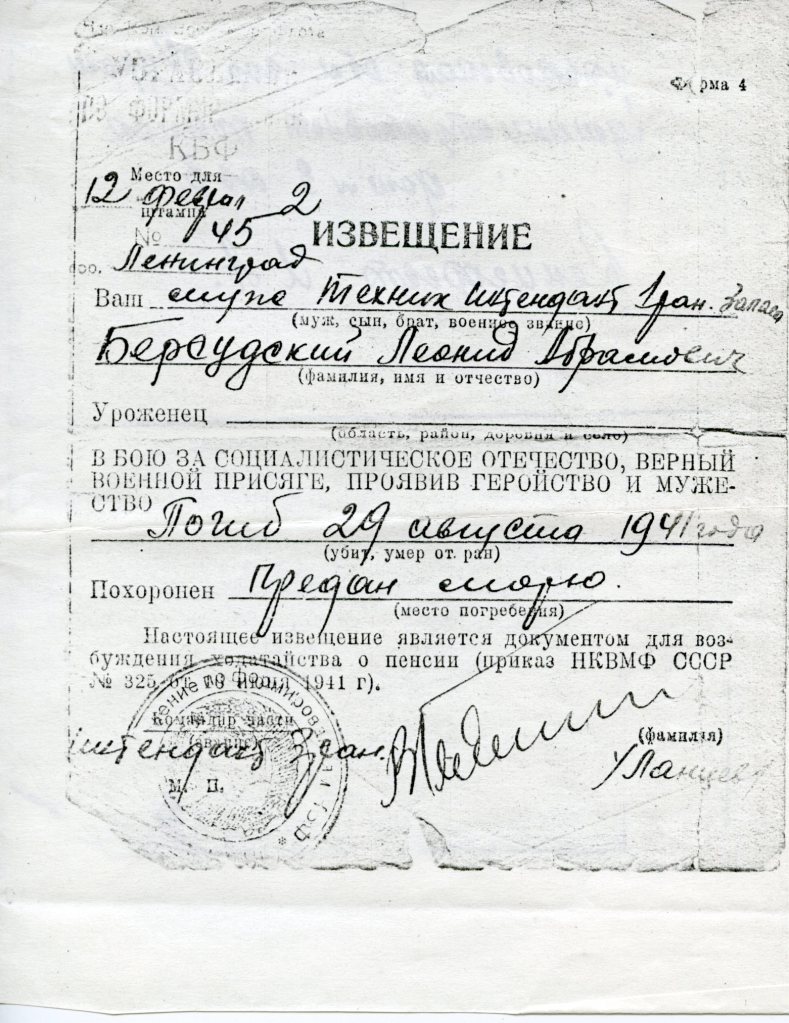 Форма 4
КБФ
Место для
штампа
12 феврал 2
№ 45
ИЗВЕЩЕНИЕ
гор. Ленинград
Ваш муж Техник Интендант 1 ран. Запаса
(муж, сын, брат, военное звание)
Берсудский Леонид Абрамович
(фамилия, имя и отчество)
Уроженец
(область, район, деревня и село)
В БОЮ ЗА СОЦИАЛИСТИЧЕСКОЕ ОТЕЧЕСТВО, ВЕРНЫЙ
ВОЕННОЙ ПРИСЯГЕ, ПРОЯВИВ ГЕРОЙСТВО И МУЖЕ-
СТВО Погиб 29 августа 1941 года
(убит, умер от ран)
Похоронен Предан морю.
(место погребения)
Настоящее извещение является документом для воз-
буждения ходатайства о пенсии (приказ НКВМФ СССР
№ 325 от 16 июня 1941 г).
Командир части
(фамилия)
Интендант 3 ран.
М. П.